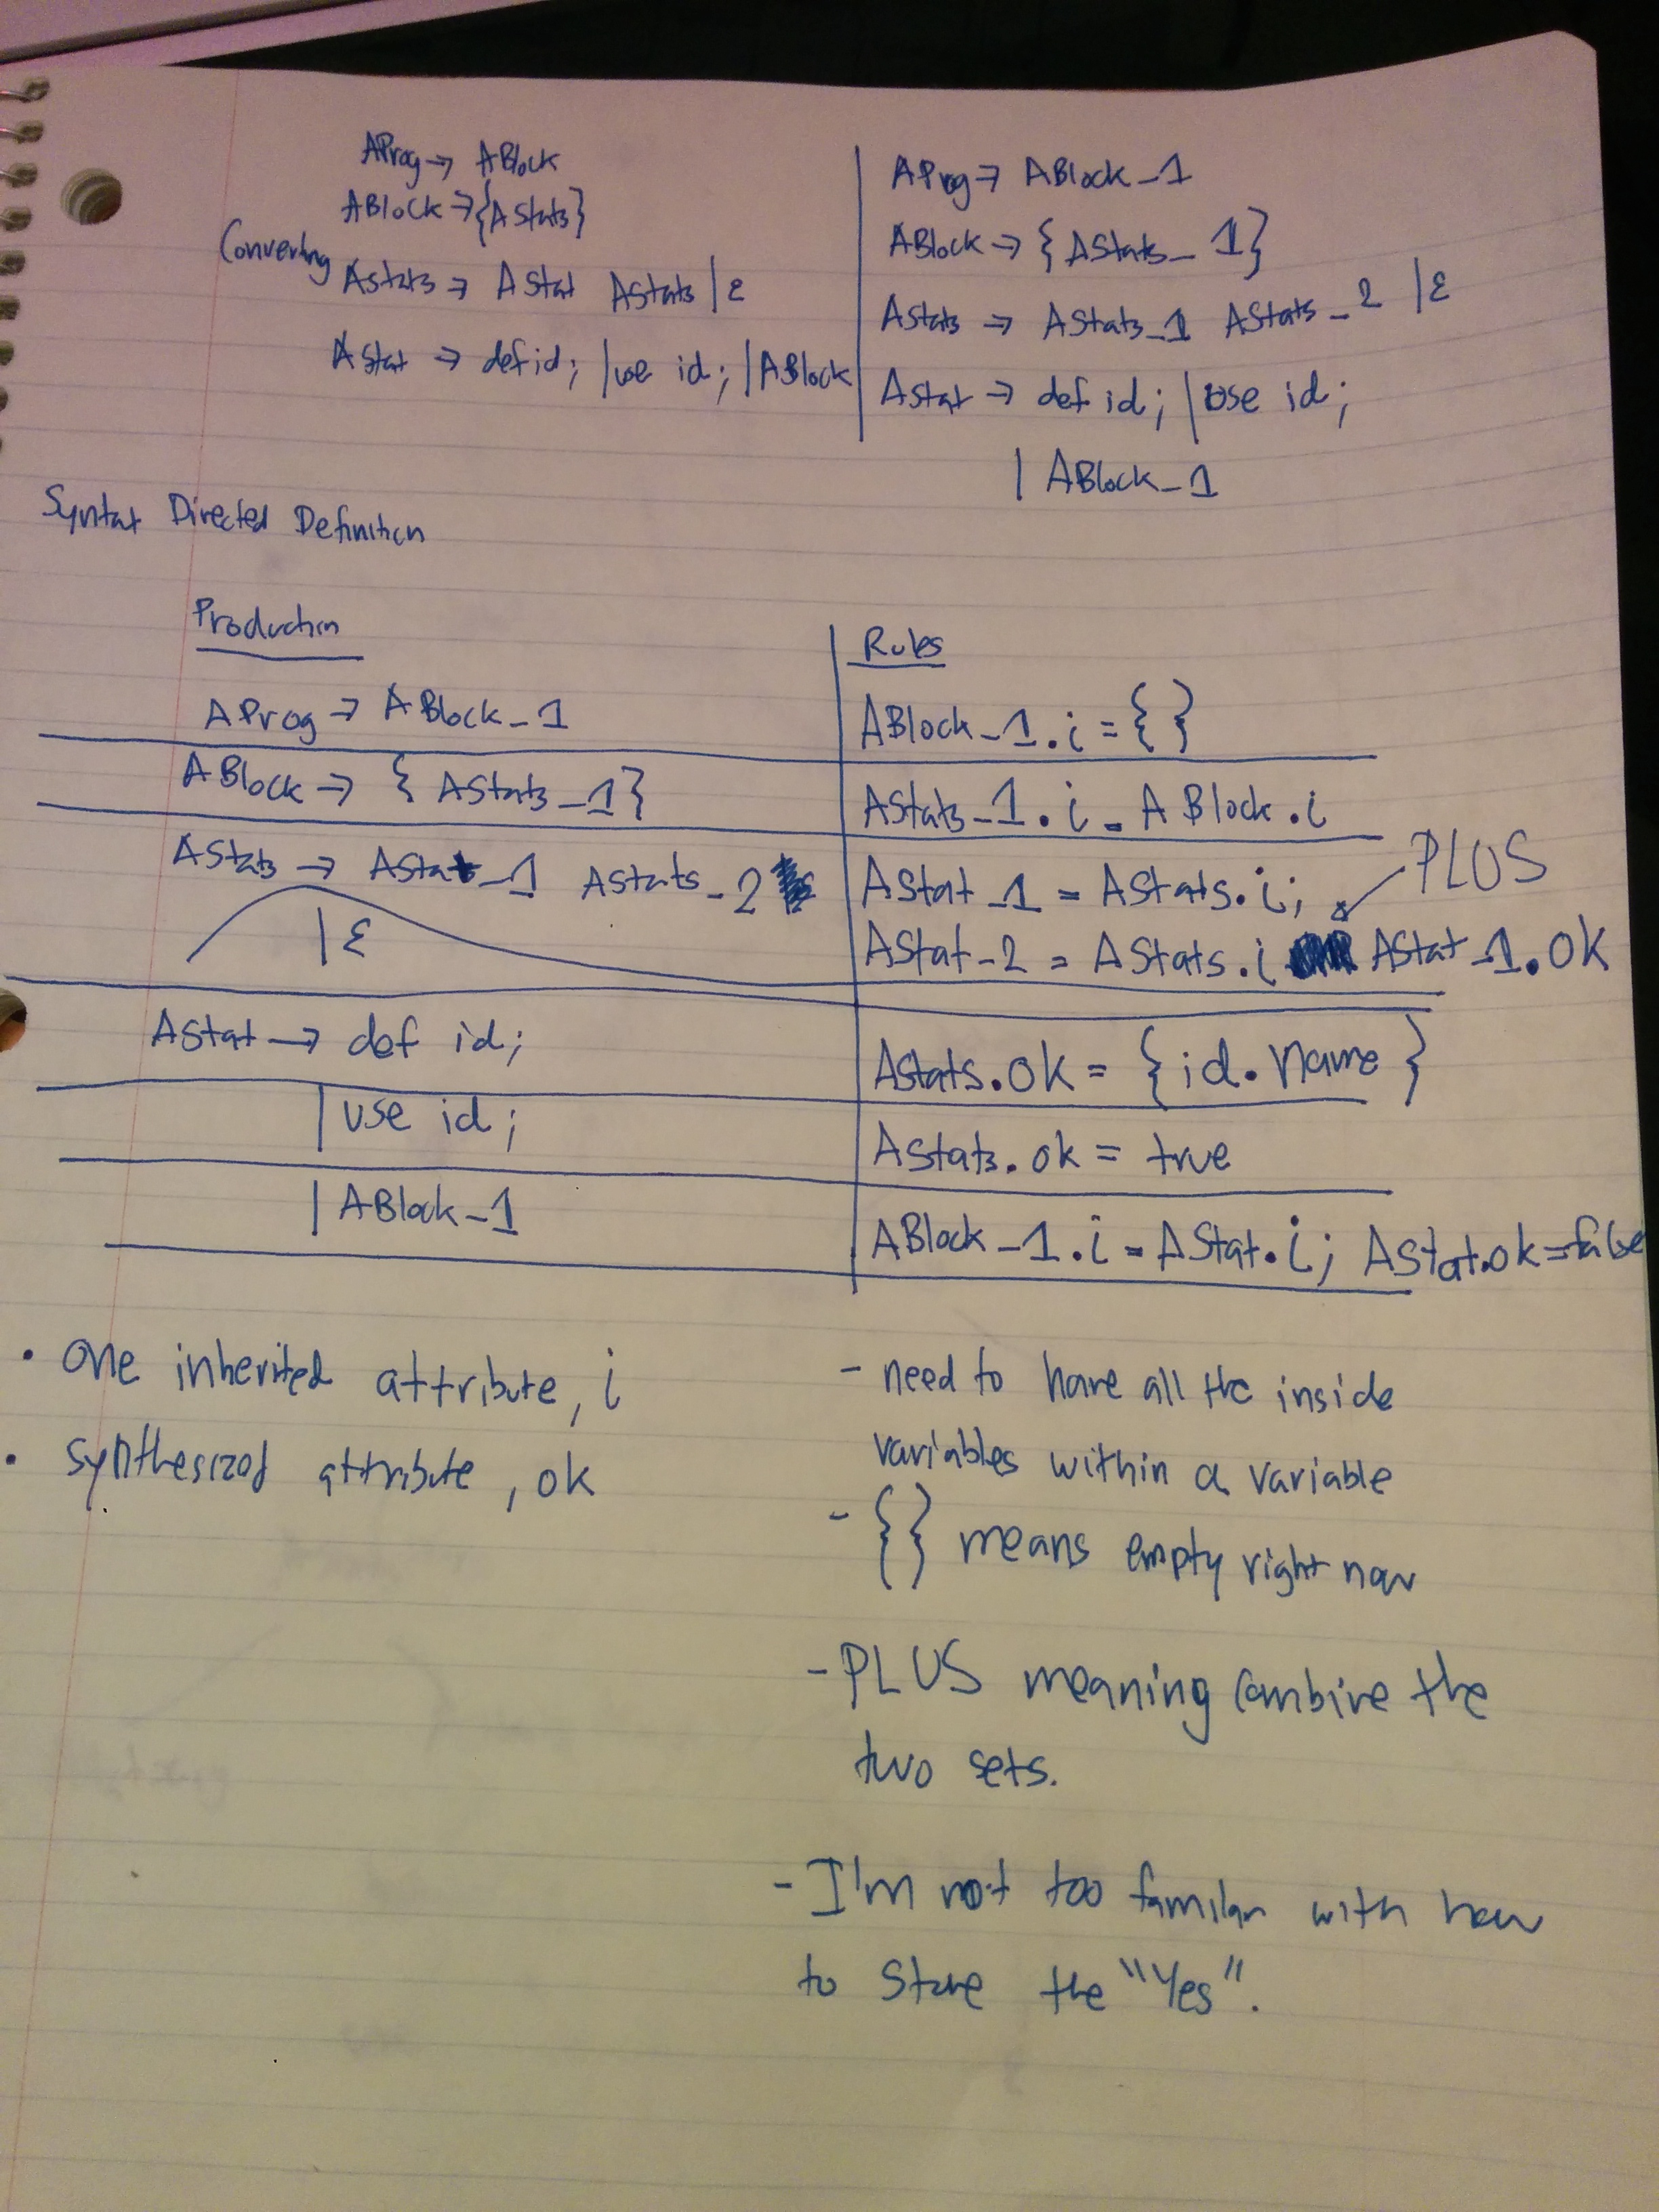 AProg → ABlock
ABlock → {AStats}
Converting
AStats → AStat AStats | ε
AStat → def id; | use id; | ABlock
AProg → ABlock_1
ABlock → {AStats_1}
AStats → AStats_1 AStats_2 | ε
AStat → def id; | use id;
| ABlock_1
Syntax Directed Definition
Production
AProg → ABlock_1
ABlock → { AStats_1}
AStats → AStat_1 AStats_2
| ε
AStat → def id;
| use id;
| ABlock_1
Rules
ABlock_1.i = { }
AStats_1.i = ABlock.i
PLUS
AStat_1 = AStats.i;
AStat_2 = AStats.i AStat_1.ok
AStats.ok = {id.name}
AStats.ok = true
ABlock_1.i = AStat.i; AStat.ok=false
• one inherited attribute, i
• synthesized attribute, ok
- need to have all the inside
variables within a variable
- {} means empty right now
- PLUS meaning combine the
two sets.
- I'm not too familar with how
to store the "Yes".